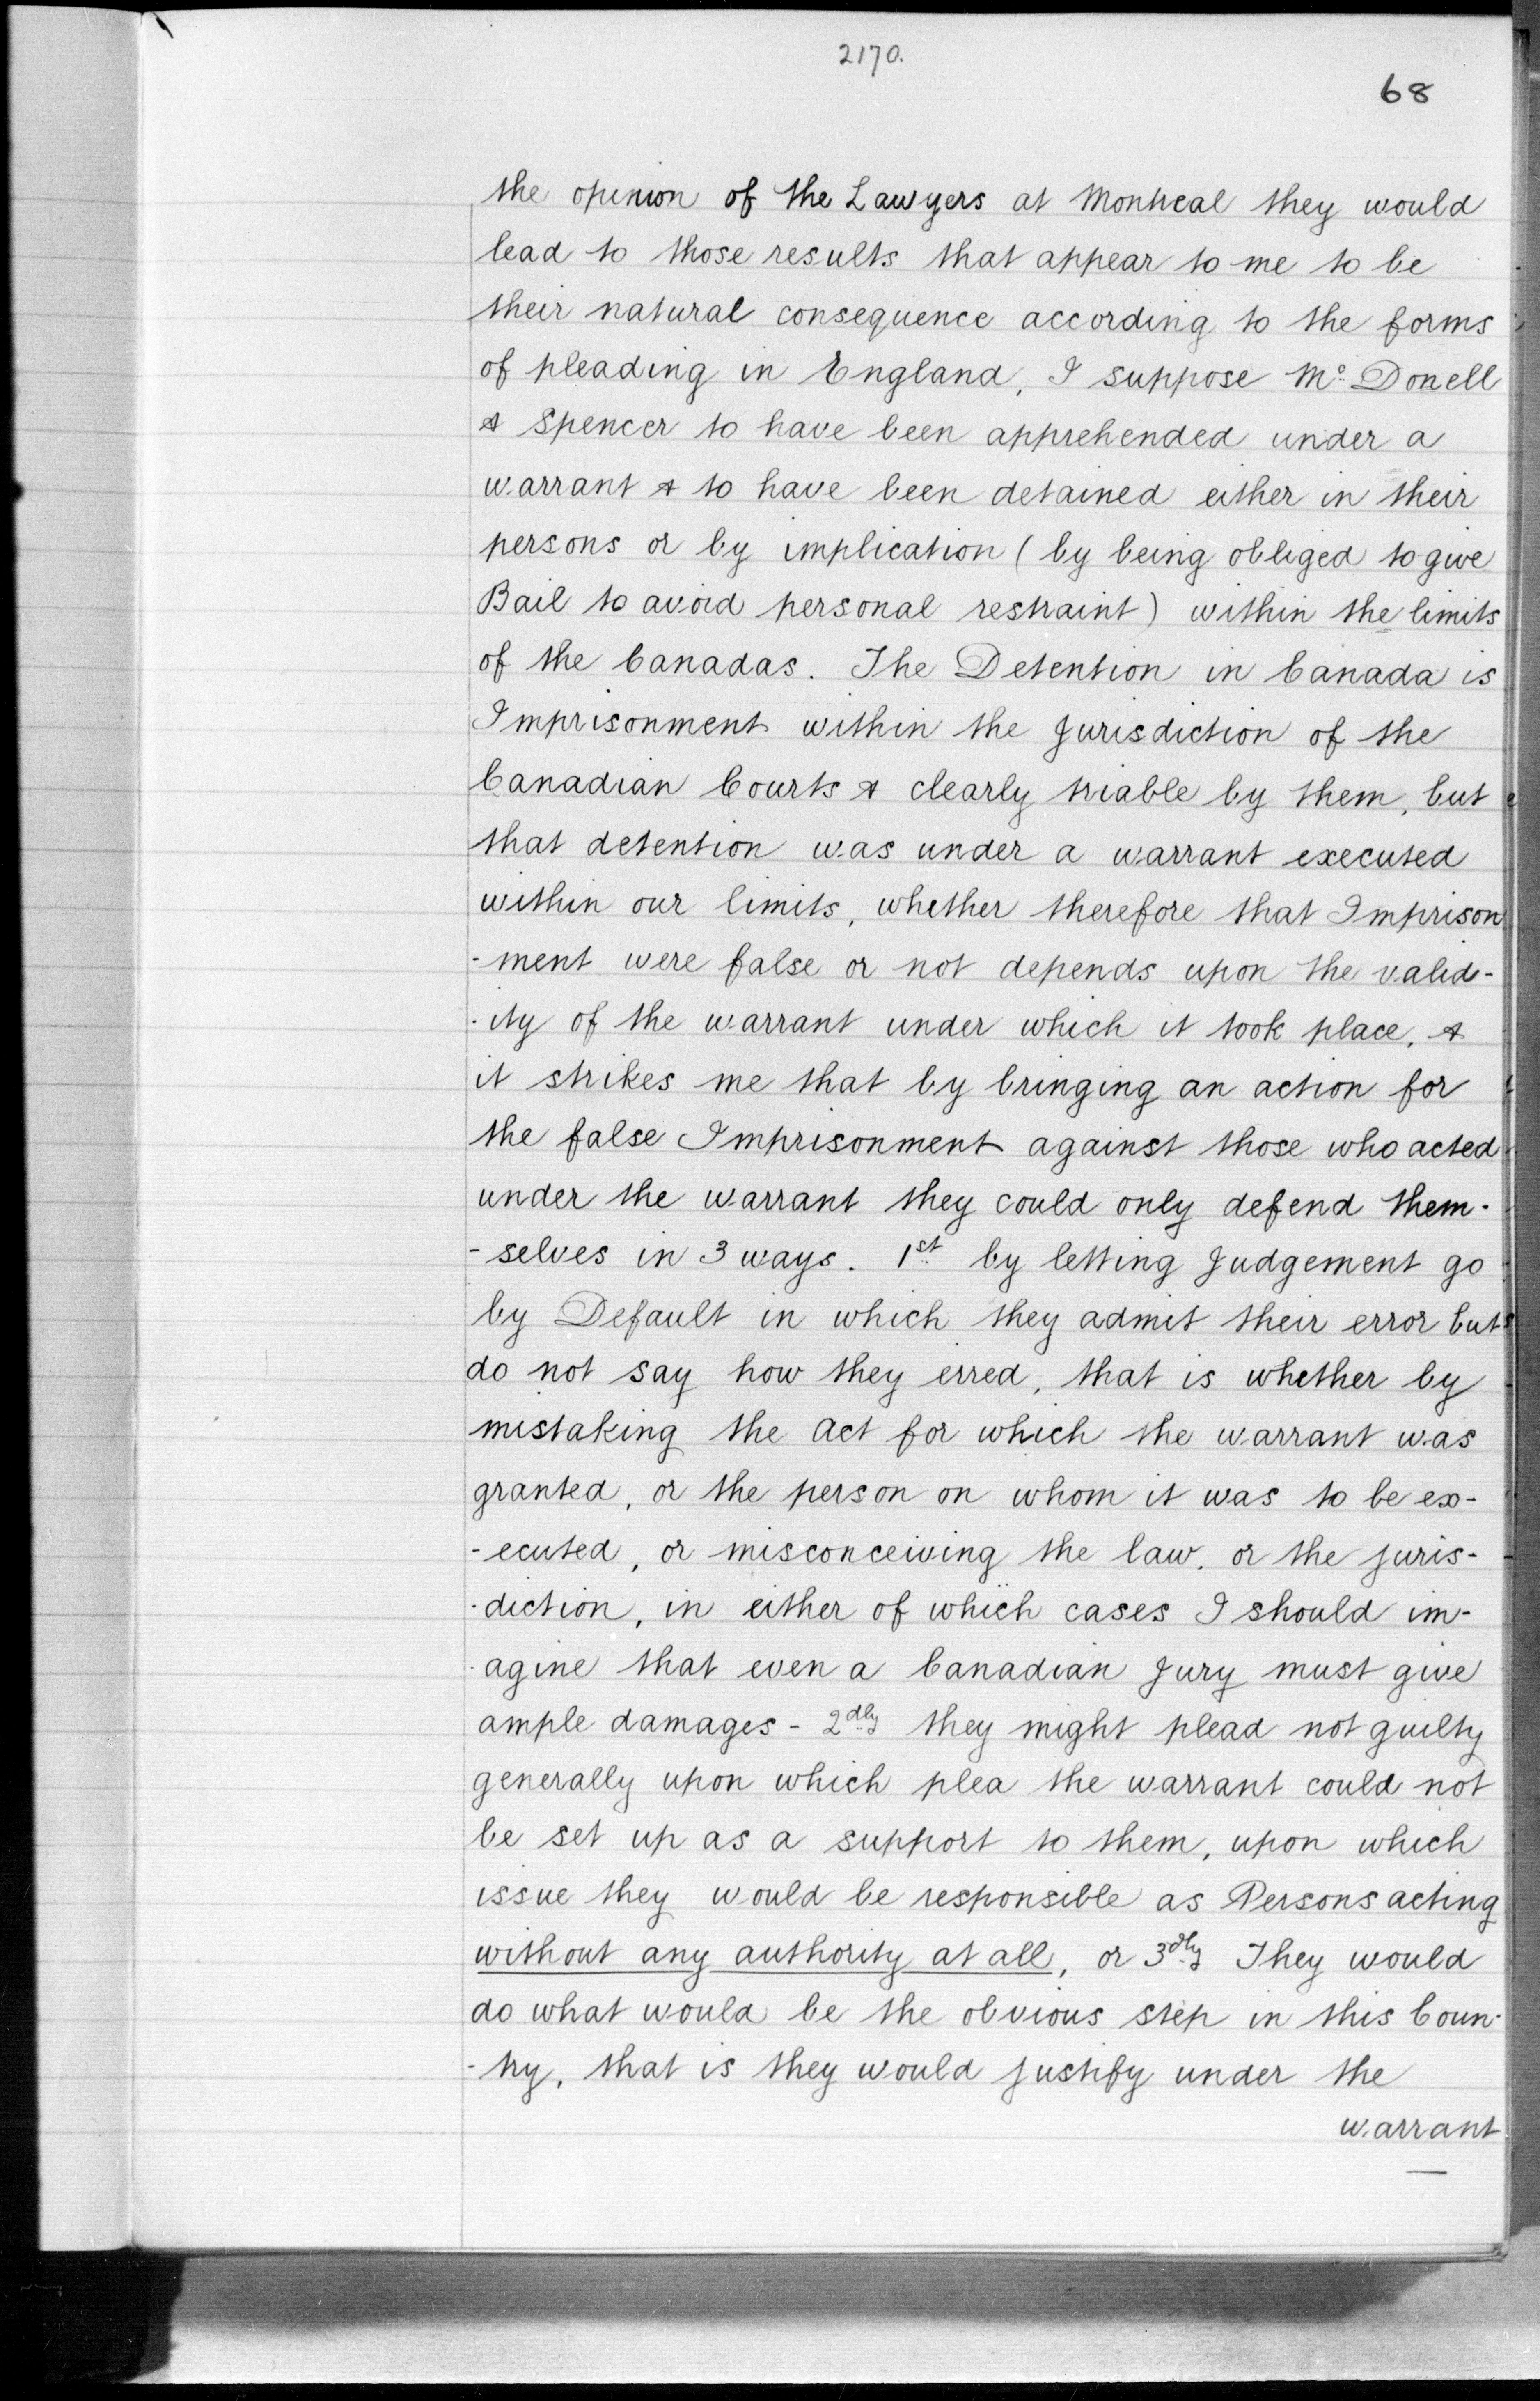 2170.
68
the opinion of the Lawyers at Montreal they would
lead to those results that appear to me to be
their natural consequence according to the forms
of pleading in England, I suppose Mc Donell
& Spencer to have been apprehended under a
warrant & to have been detained either in their
persons or by implication (by being obliged to give
Bail to avoid personal restraint) within the limits
of the Canadas. The Detention in Canada is
Imprisonment within the Jurisdiction of the
Canadian Courts & clearly triable by them, but
that detention was under a warrant executed
within our limits, whether therefore that Imprison
-ment were false or not depends upon the valid-
-ity of the warrant under which it took place, &
it strikes me that by bringing an action for
the false Imprisonment against those who acted
under the warrant they could only defend them-
-selves in 3 ways. 1st by letting Judgement go
by Default in which they admit their error but
do not say how they erred, that is whether by
mistaking the Act for which the warrant was
granted, or the person on whom it was to be ex-
-ecuted, or misconceiving the law, or the juris-
-diction, in either of which cases I should im-
-agine that even a Canadian Jury must give
ample damages - 2dly they might plead not guilty
generally upon which plea the warrant could not
be set up as a support to them, upon which
issue they would be responsible as Persons acting
without any authority at all, or 3dly They would
do what would be the obvious step in this Coun-
-try, that is they would justify under the
warrant